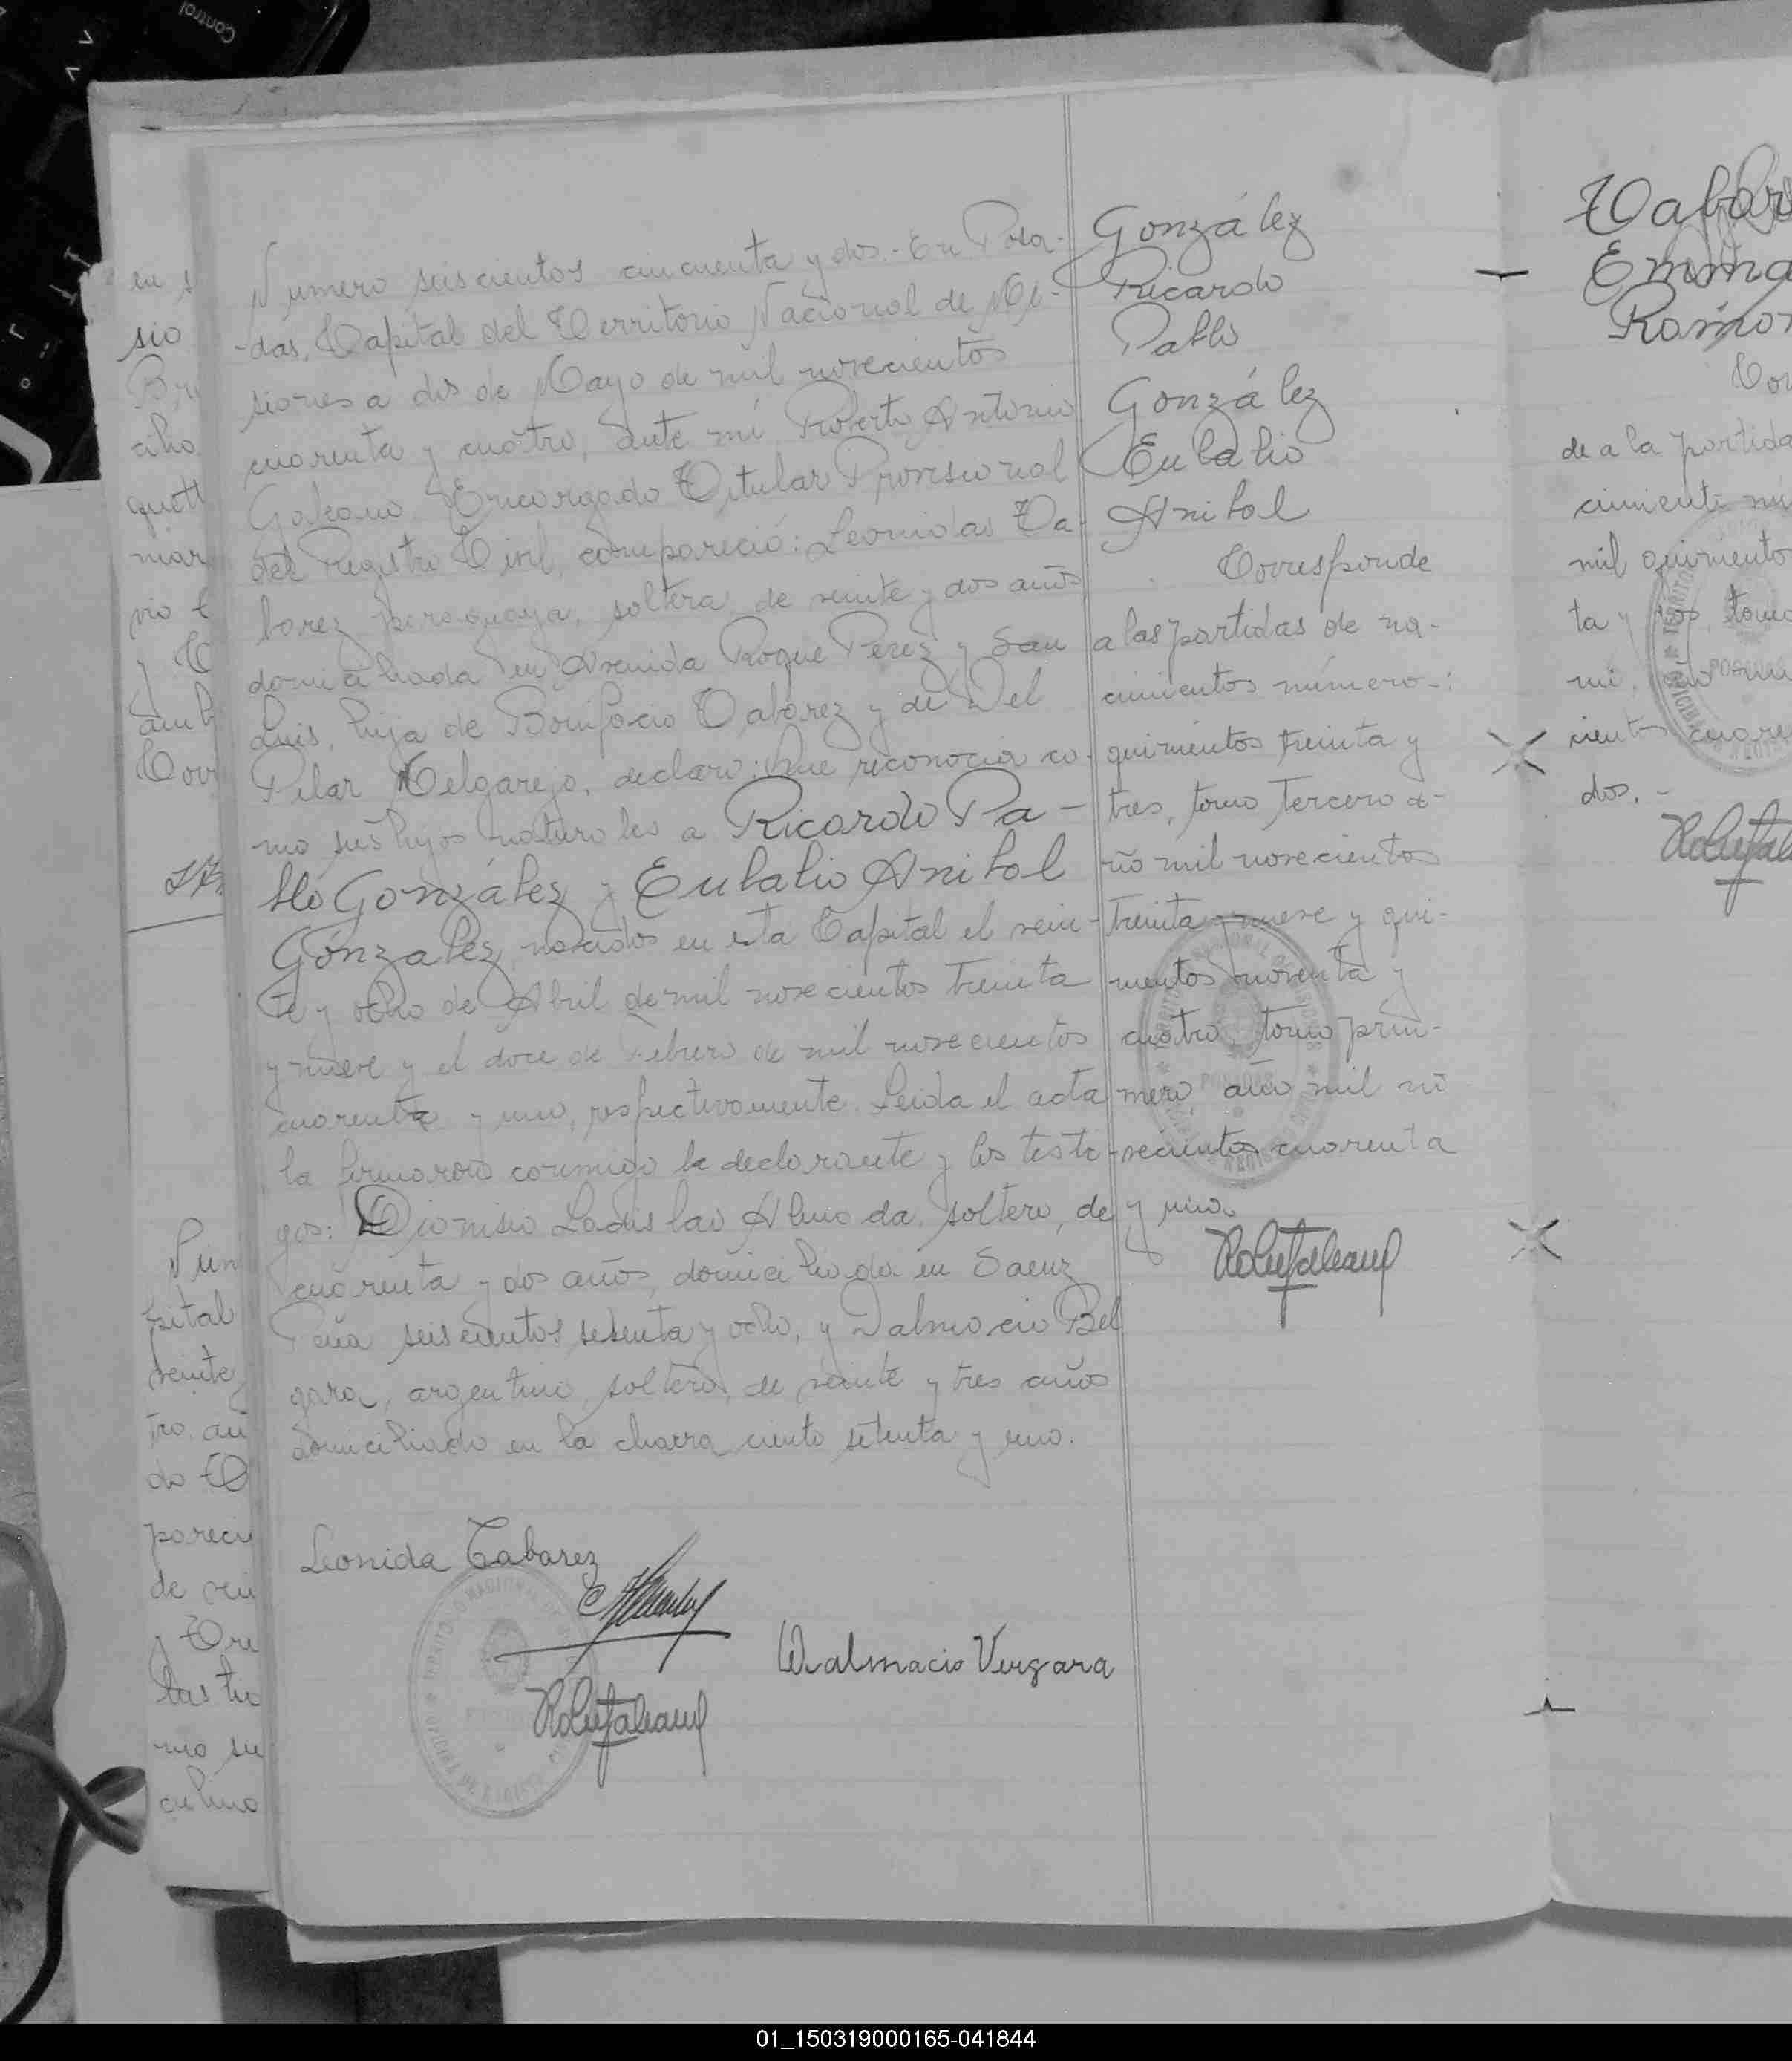 Número seiscientos cincuenta y dos.- En Posa-
-das, Capital del Territorio Nacional de Mi-
siones a dos de Mayo de mil novecientos
cuarenta y cuatro, ante mí Roberto Antonio
Galeano, Encargado Titular Provisional
del Registro Civil, compareció: Leonidas Ta-
barez, paraguaya, soltera, de veinte y dos años,
domiciliada en Avenida Roque Perez y San
Luis, hija de Bonifacio Tabarez y de Del
Pilar Melgarejo, declaro: Que reconocia co-
mo sus hijos naturales a Ricardo Pa-
blo González y Eulalio Anibal
Gónzalez, nacidos en esta Capital el vein-
te y ocho de Abril de mil novecientos treinta
y nueve y el doce de Febrero de mil novecientos
cuarenta y uno, respectivamente. Leida el acta
la firmaron conmigo la declarante y los testi-
gos: Dionisio Ladislao Almeda, soltero, de
cuarenta y dos años, domiciliado en Saenz
Peña seiscientos setenta y ocho, y Dalmacio Bel
gara, argentino, soltero, de veinte y tres años
domiciliado en la chacra ciento setenta y uno.
Leonida Tabarez
Walmacio Vergara
González
Ricardo
Pablo
González
Eulalio
Anibal
Corresponde
a las partidas de na-
cimientos número-:
quinientos treinta y
tres, tomo tercero a-
ño mil novecientos
treinta y nueve y qui-
nientos noventa y
cuatro tomo prim-
mero año mil no
vecientos cuarenta
y uno.
Emma
Ramon
de a la partida
cimiento
mil quinientos
ta y dos, tomo
dos.-
Control
01_150319000165-041844